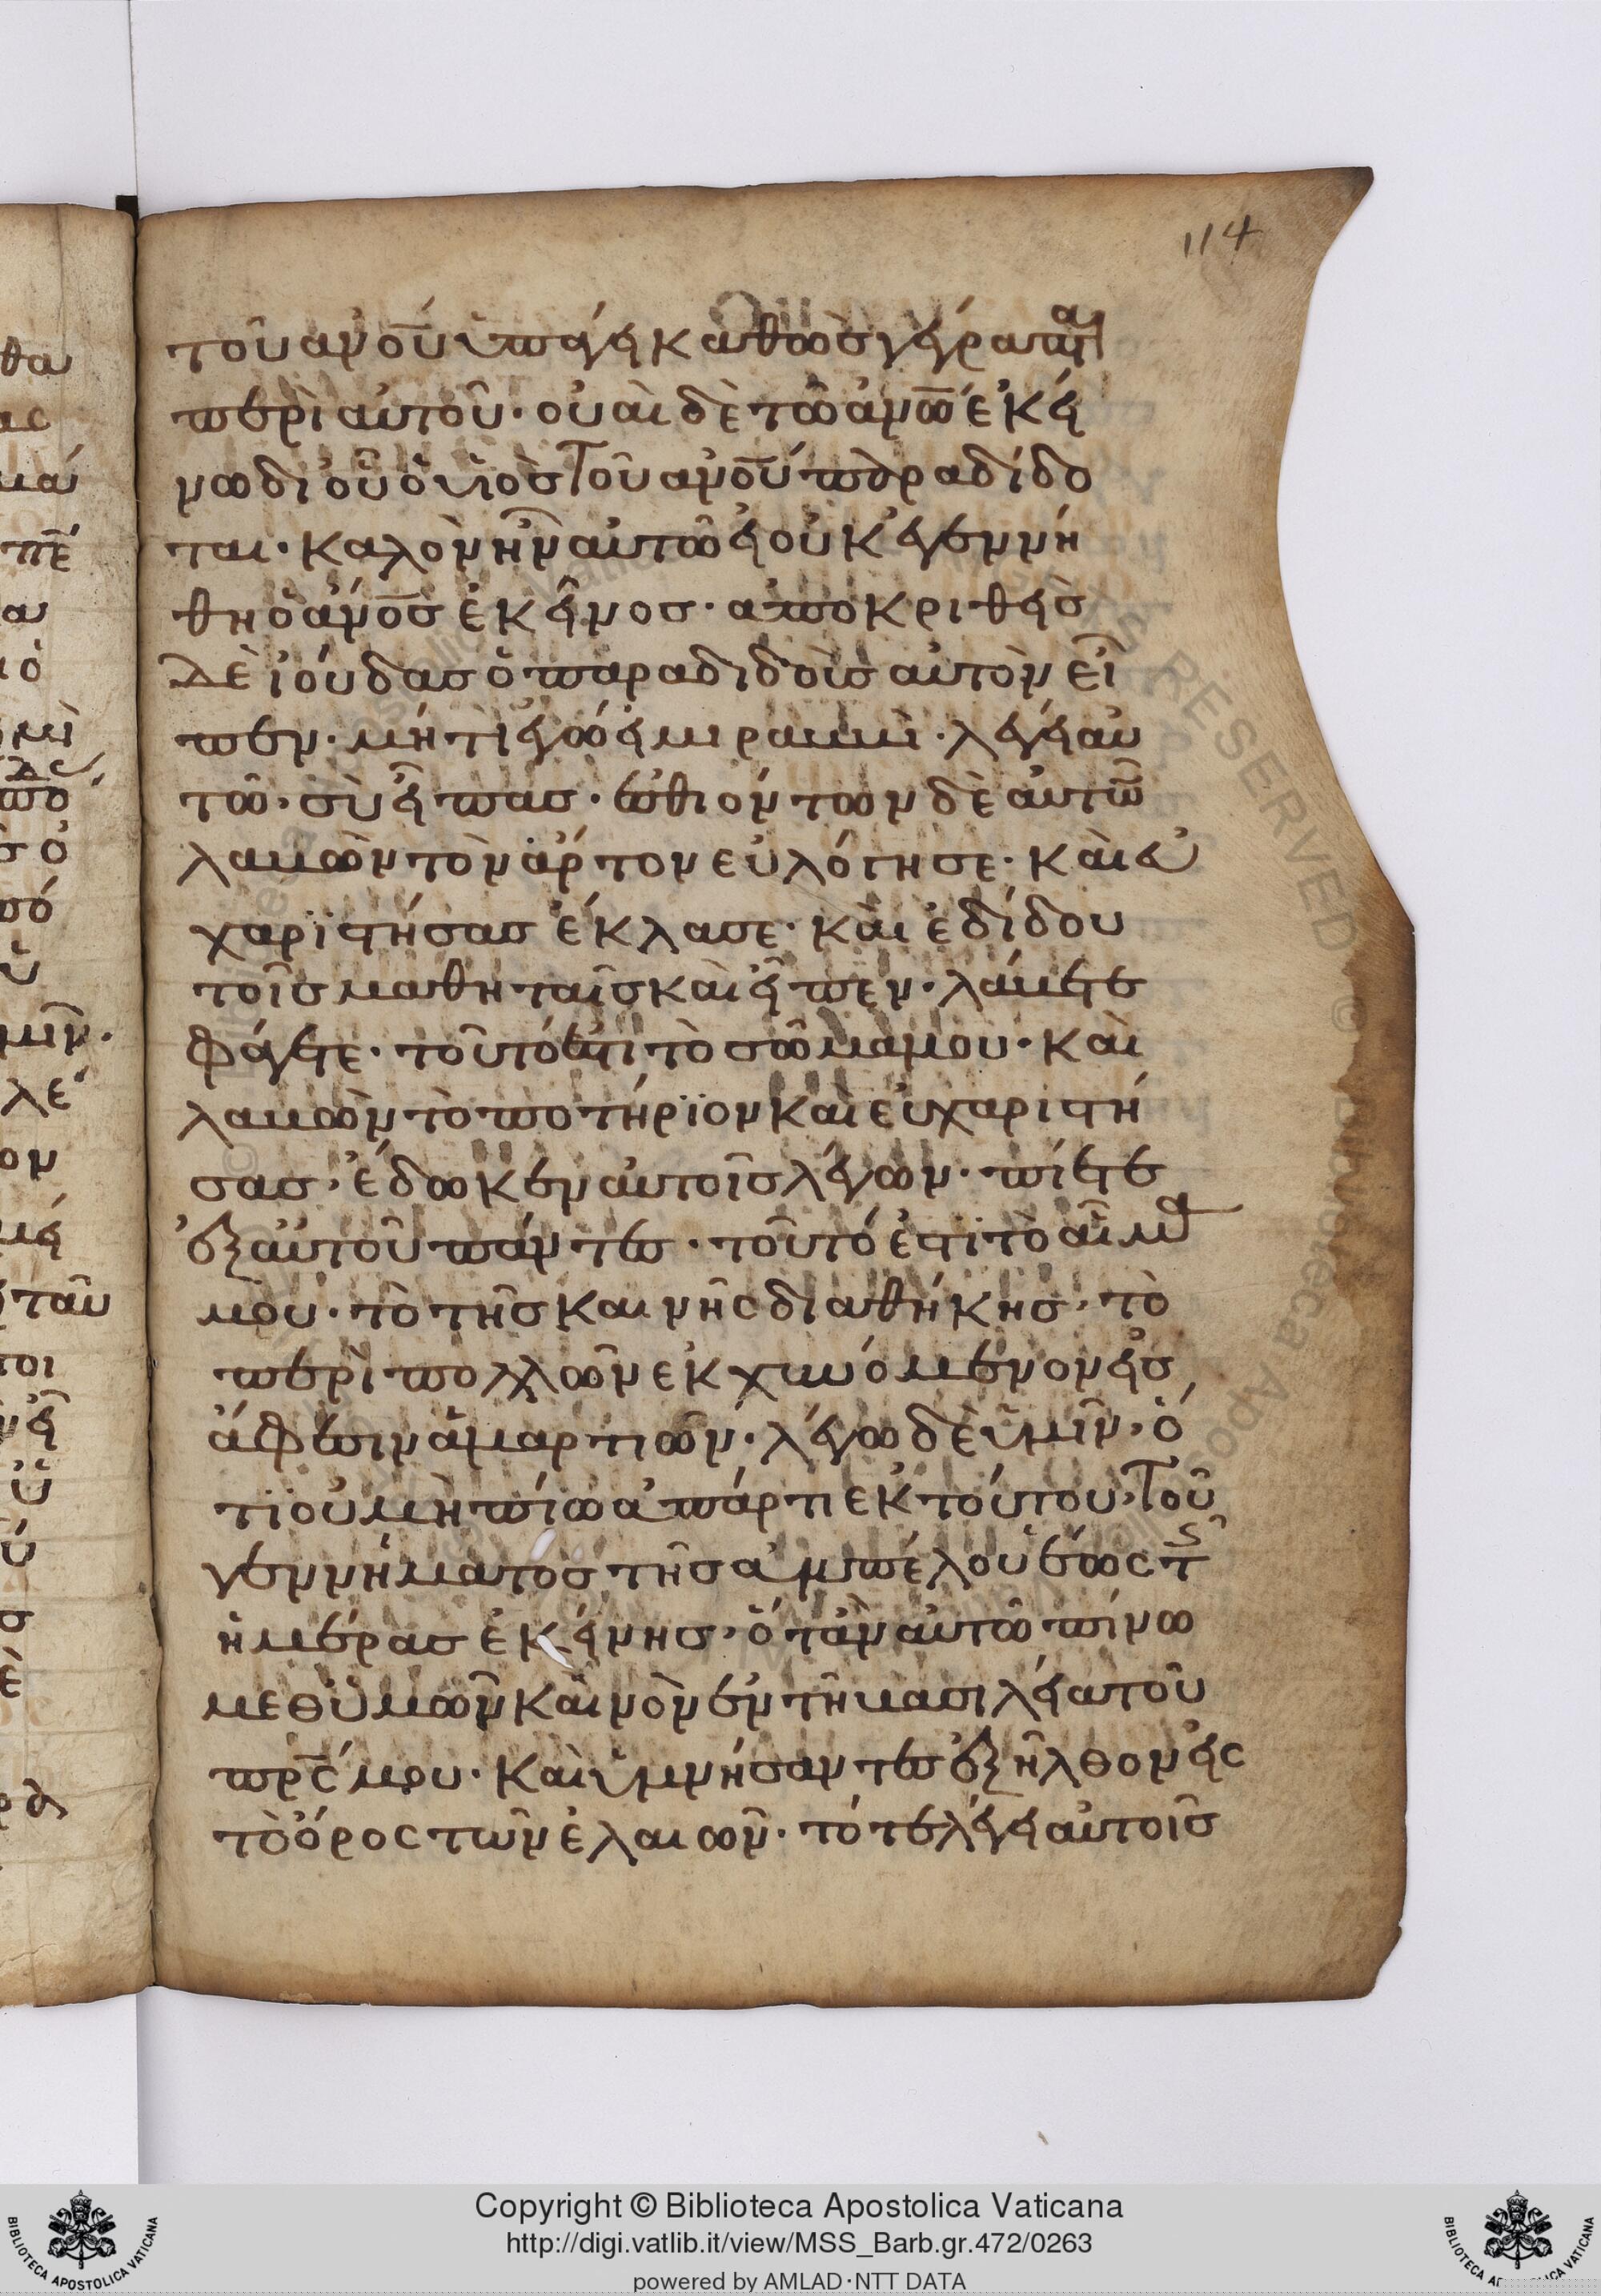 114
τοῦ ἀν̅ου ὑπάγει καθὼς γέγραπται
περὶ αὐτοῦ· οὐαὶ δὲ τῶ ἀν̅ω ἐκεί
νω δι οὗ ὁ υἱὸς τοῦ ἀν̅ου παραδίδο
ται· καλὸν ἦν αὐτῶ εἰ οὐκ ἐγεννή
θη ὁ ἄν̅ος ἐκεῖνος· ἀποκριθεὶς
δὲ ἰούδας ὁ παραδιδοὺς αὐτὸν εἶ
πεν· μήτι ἐγώ εἰμι ραββί· λέγει αὐ
τῶ· σὺ εἶπας· ἐσθιόντων δὲ αὐτῶ̅
λαβὼν τὸν ἄρτον εὐλόγησε· καὶ εὐ
χαριστήσας ἔκλασε· καὶ ἐδίδου
τοῖς μαθηταῖς καὶ εἶπεν· λάβετε
φάγετε· τοῦτό ἐστι τὸ σῶμα μου· καὶ
λαβὼν τὸ ποτήριον καὶ εὐχαριστή
σας· ἔδωκεν αὐτοῖς λέγων· πίετε
ἐξ αὐτοῦ πάντες· τοῦτό ἐστι τὸ αἷμα
μου· τὸ τῆς καινῆς διαθήκης· τὸ
περὶ πολλῶν ἐκχυνόμενον εἰς
ἄφεσιν ἁμαρτιῶν· λέγω δὲ ὑμῖν· ὅ
τι οὐ μὴ πίω ἀπάρτι ἐκ τούτου τοῦ
γεννήματος τῆς ἀμπέλου ἕως τῆς
ἡμέρας ἐκείνης· ὅταν αὐτῶ πίνω
μεθ ὑμῶν καινὸν ἐν τῆ βασιλεία τοῦ
πρ̅ς μου· καὶ ὑμνήσαντες ἐξῆλθον εἰς
τὸ ὄρος τῶν ἐλαιῶν· τότε λέγει αὐτοῖς
Copyright © Biblioteca Apostolica Vaticana
http://digi.vatlib.it/view/MSS_Barb.gr.472/0263
powered by AMLAD·NTT DATA
BIBLIOTECA APOSTOLICA VATICANA
BIBLIOTECA APOSTOLICA VATICANA